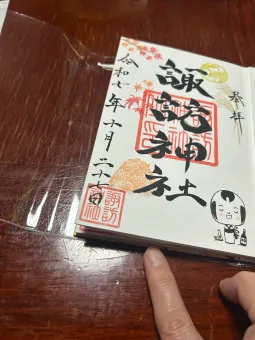 奉拝
諏訪神社
令和七年十月二十七日
諏訪神社